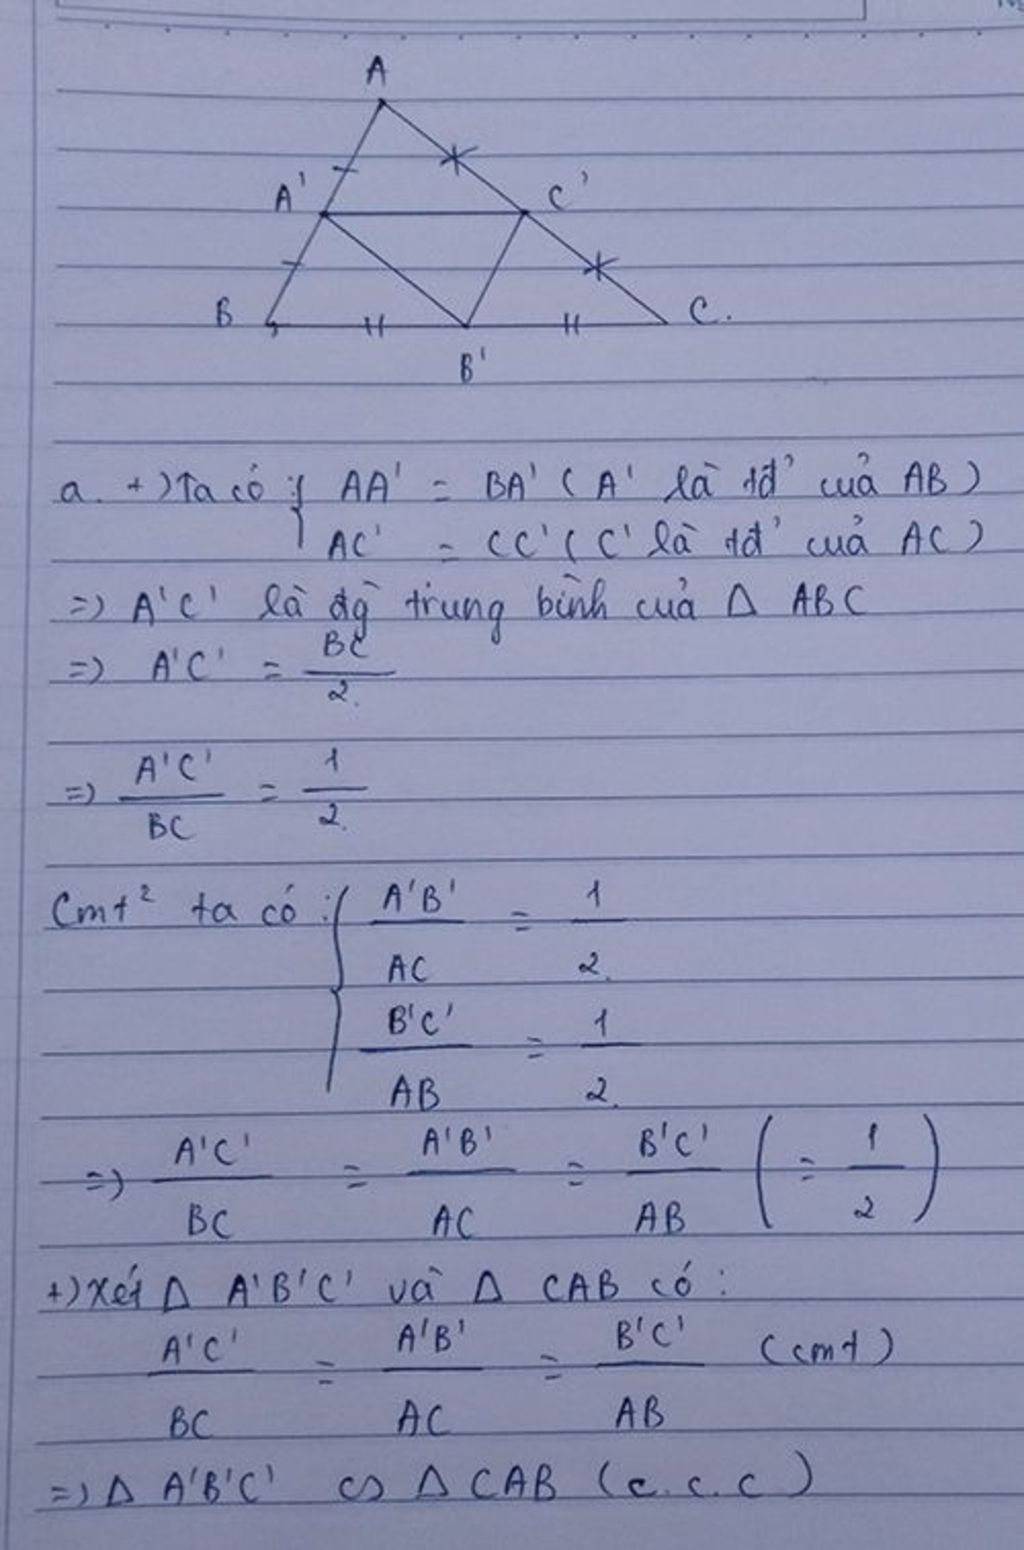 A
A' C'
B C.
B'
a. +) Ta có { AA' = BA' (A' là tđ' của AB)
AC' = CC' (C' là tđ' của AC)
=> A'C' là đg trung bình của Δ ABC
=> A'C' = BC/2.
=> A'C'/BC = 1/2.
Cmt² ta có : { A'B'/AC = 1/2.
B'C'/AB = 1/2.
=> A'C'/BC = A'B'/AC = B'C'/AB (= 1/2)
+) Xét Δ A'B'C' và Δ CAB có :
A'C'/BC = A'B'/AC = B'C'/AB (cmt)
=> Δ A'B'C' ∽ Δ CAB (c.c.c)